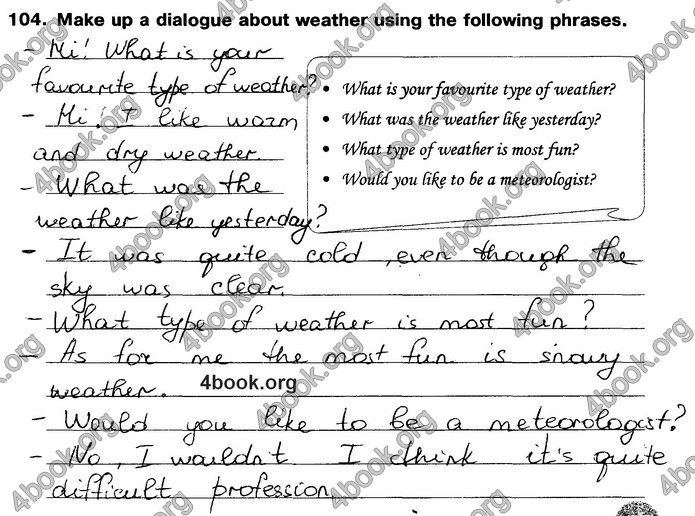 104. Make up a dialogue about weather using the following phrases.
- Hi! What is your
favourite type of weather?
- Hi! I like warm
and dry weather.
- What was the
weather like yesterday?
• What is your favourite type of weather?
• What was the weather like yesterday?
• What type of weather is most fun?
• Would you like to be a meteorologist?
- It was quite cold, even though the
sky was clear.
- What type of weather is most fun?
- As for me the most fun is snowy
weather.
4book.org
- Would you like to be a meteorologist?
- No, I wouldn't I think it's quite
difficult profession.